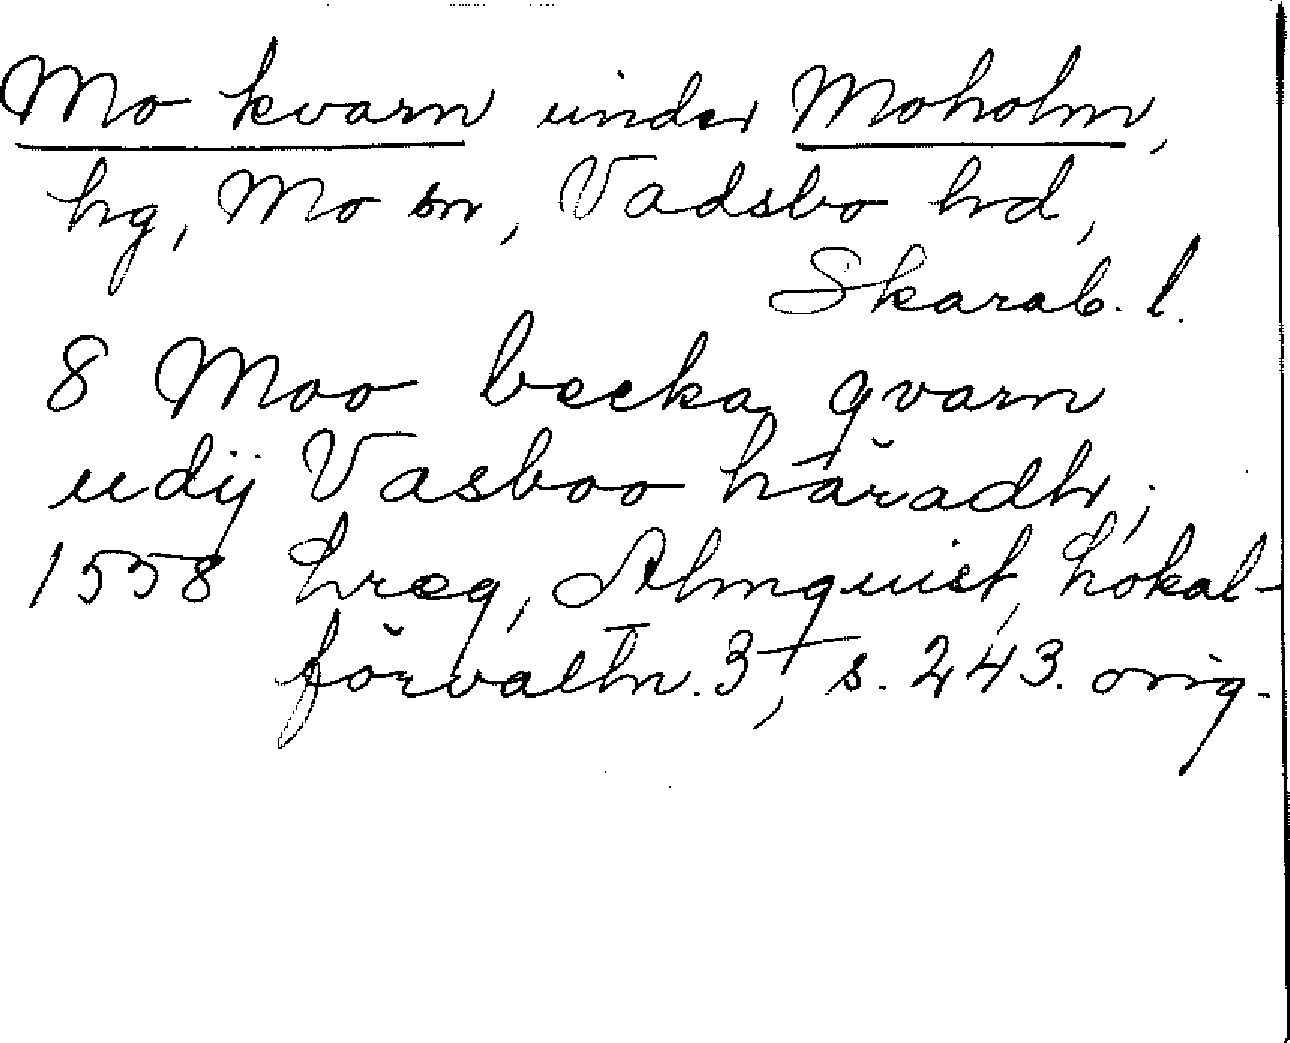 Mo kvarn under Moholm,
hg, Mo sn, Vadsbo hd,
Skarab. l.
8 Moo becka qvarn
udij Vasboo häradh;
1558 Lreg, Almquist, Lokal-
förvaltn. 3, s. 243. orig.